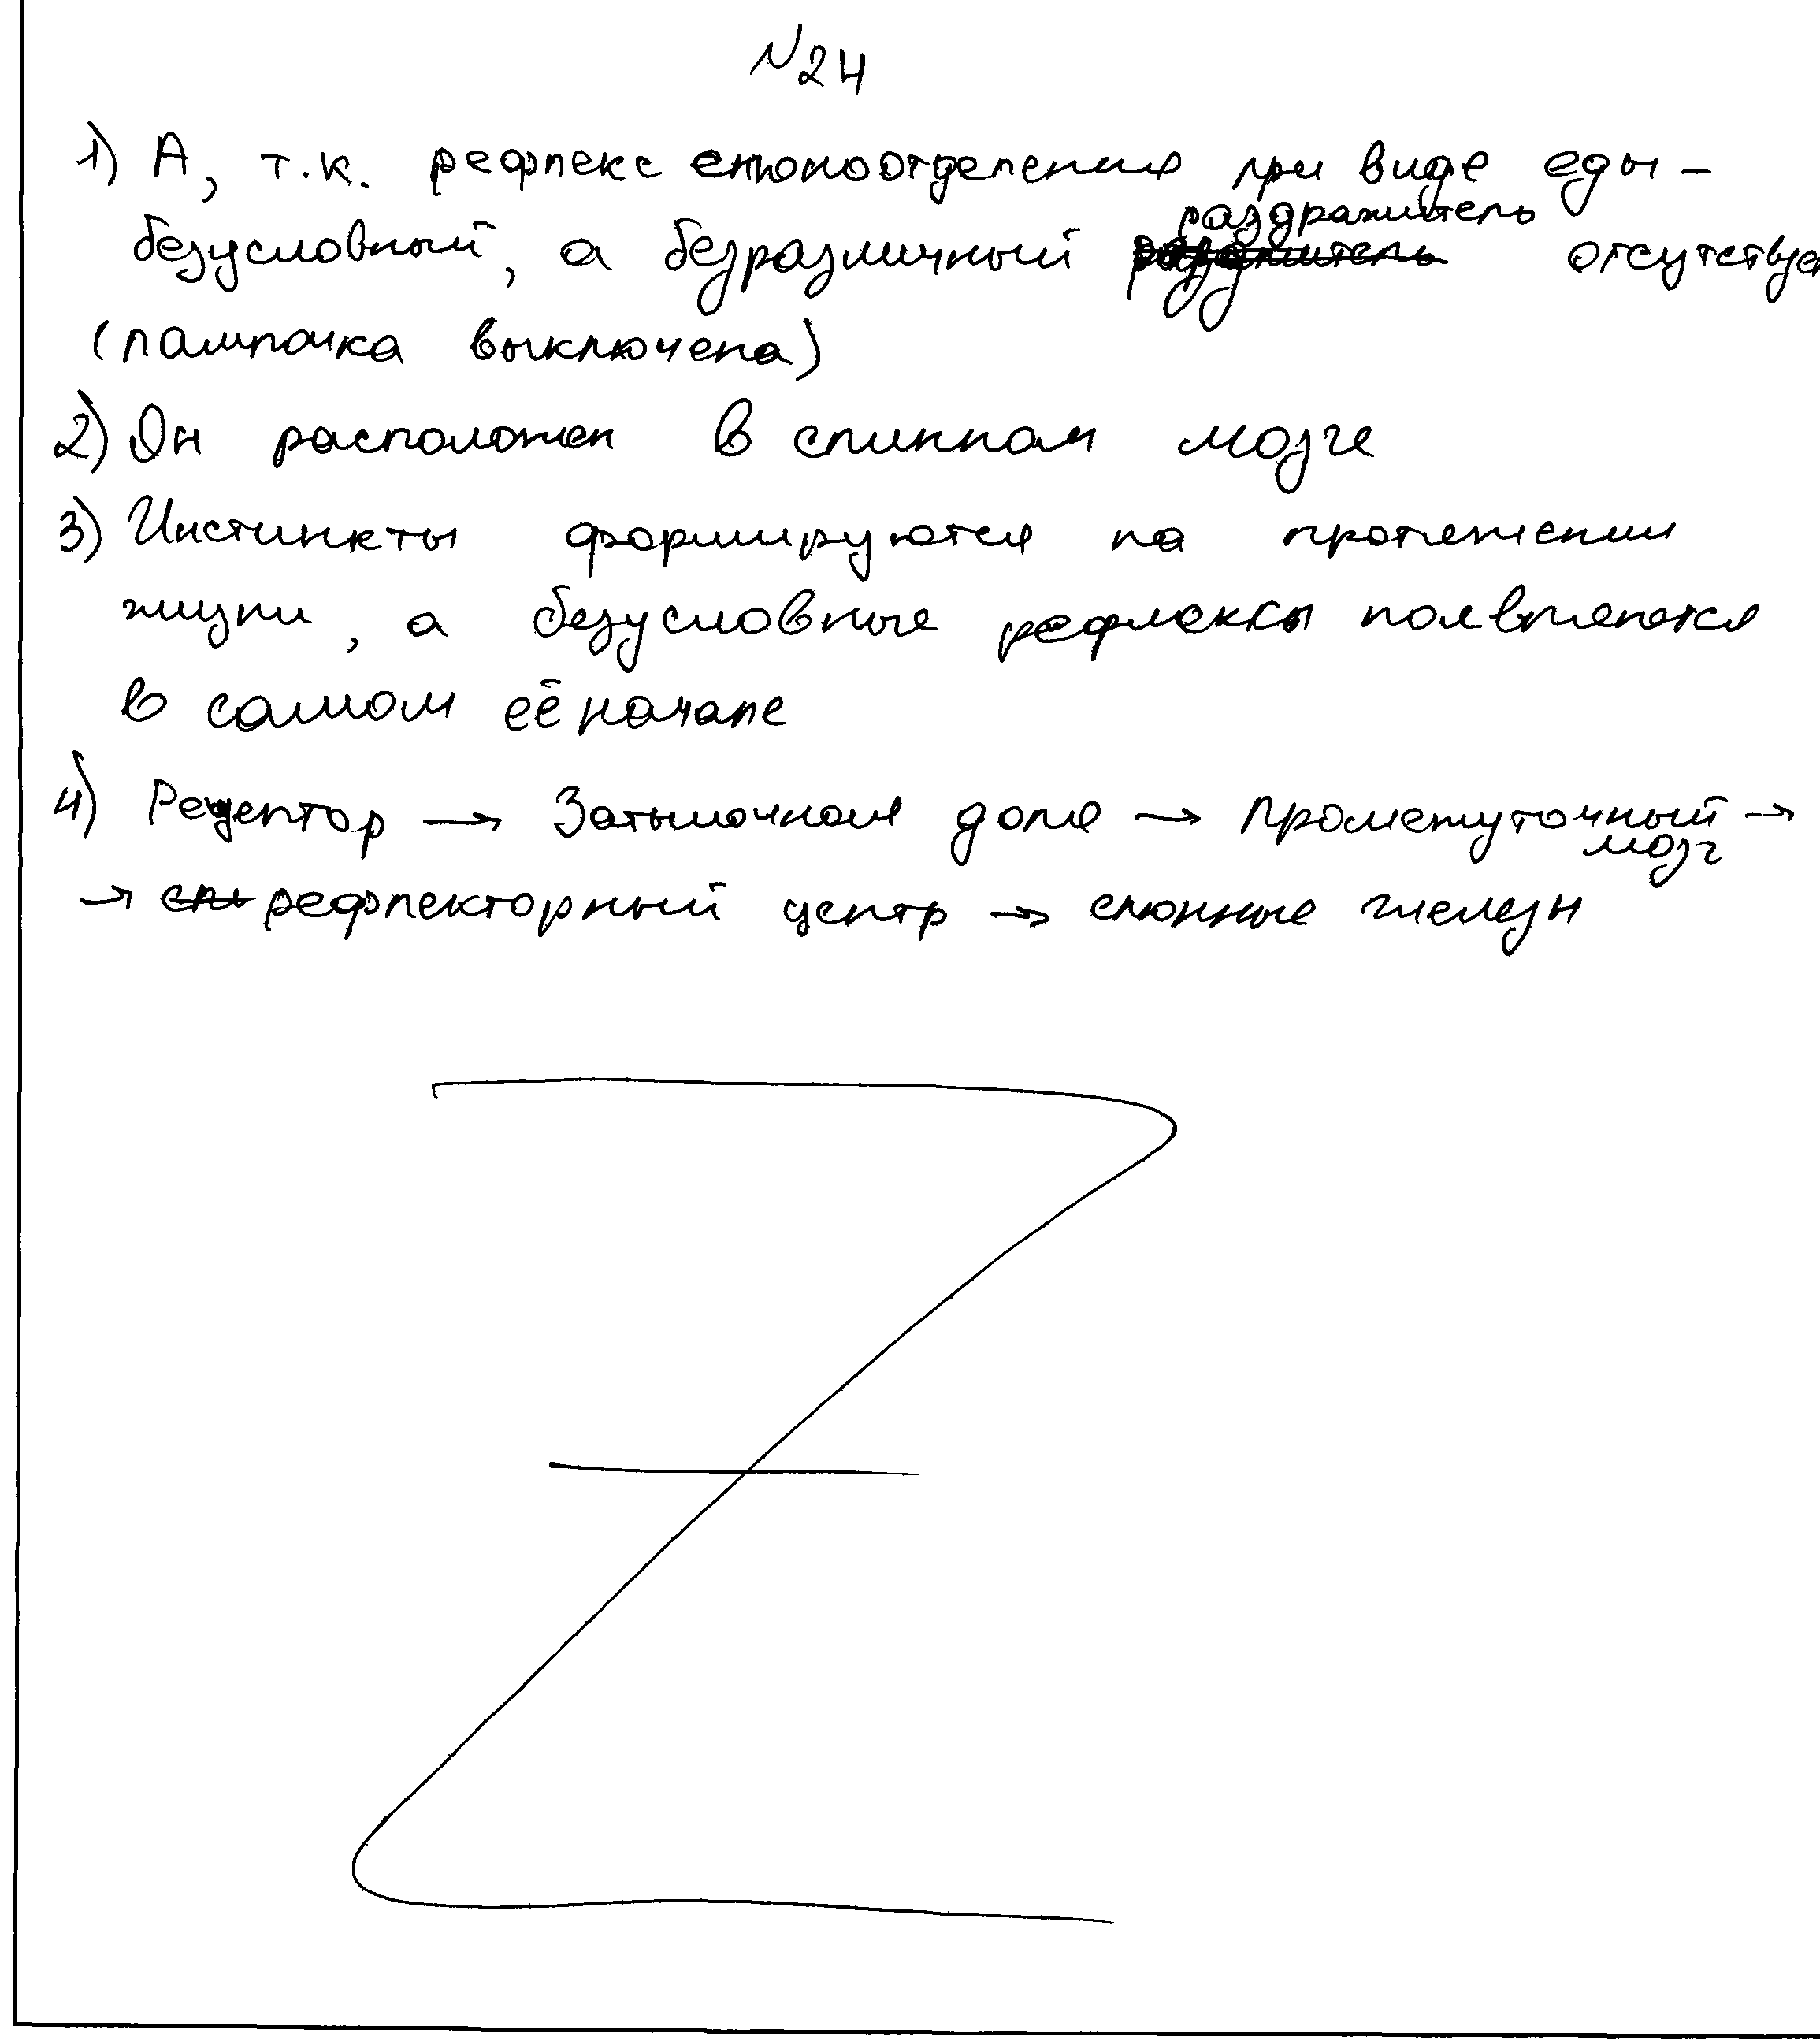 №24
1) А, т.к. рефлекс слюноотделения при виде еды -
безусловный, а безразличный раздражитель отсутствуе
(лампочка выключена)
2) Он расположен в спинном мозге
3) Инстинкты формируются на протяжении
жизни, а безусловные рефлексы появляются
в самом её начале
4) Рецептор → Затылочная доля → Промежуточный мозг →
→ рефлекторный центр → слюнные железы